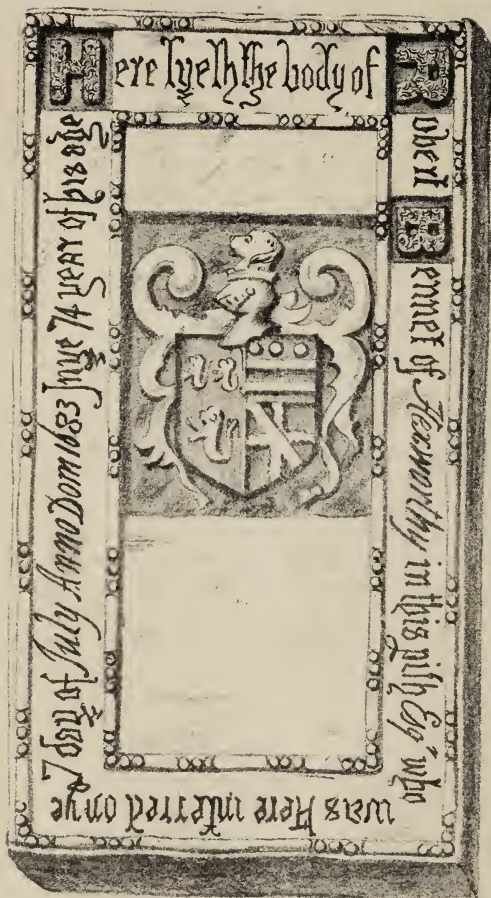 Here lyeth the body of
Robert Bennet of Hexworthy in this pish Esqr who
was Here interred on ye
7 day of July Anno Dom 1683 In ye 74 year of his age